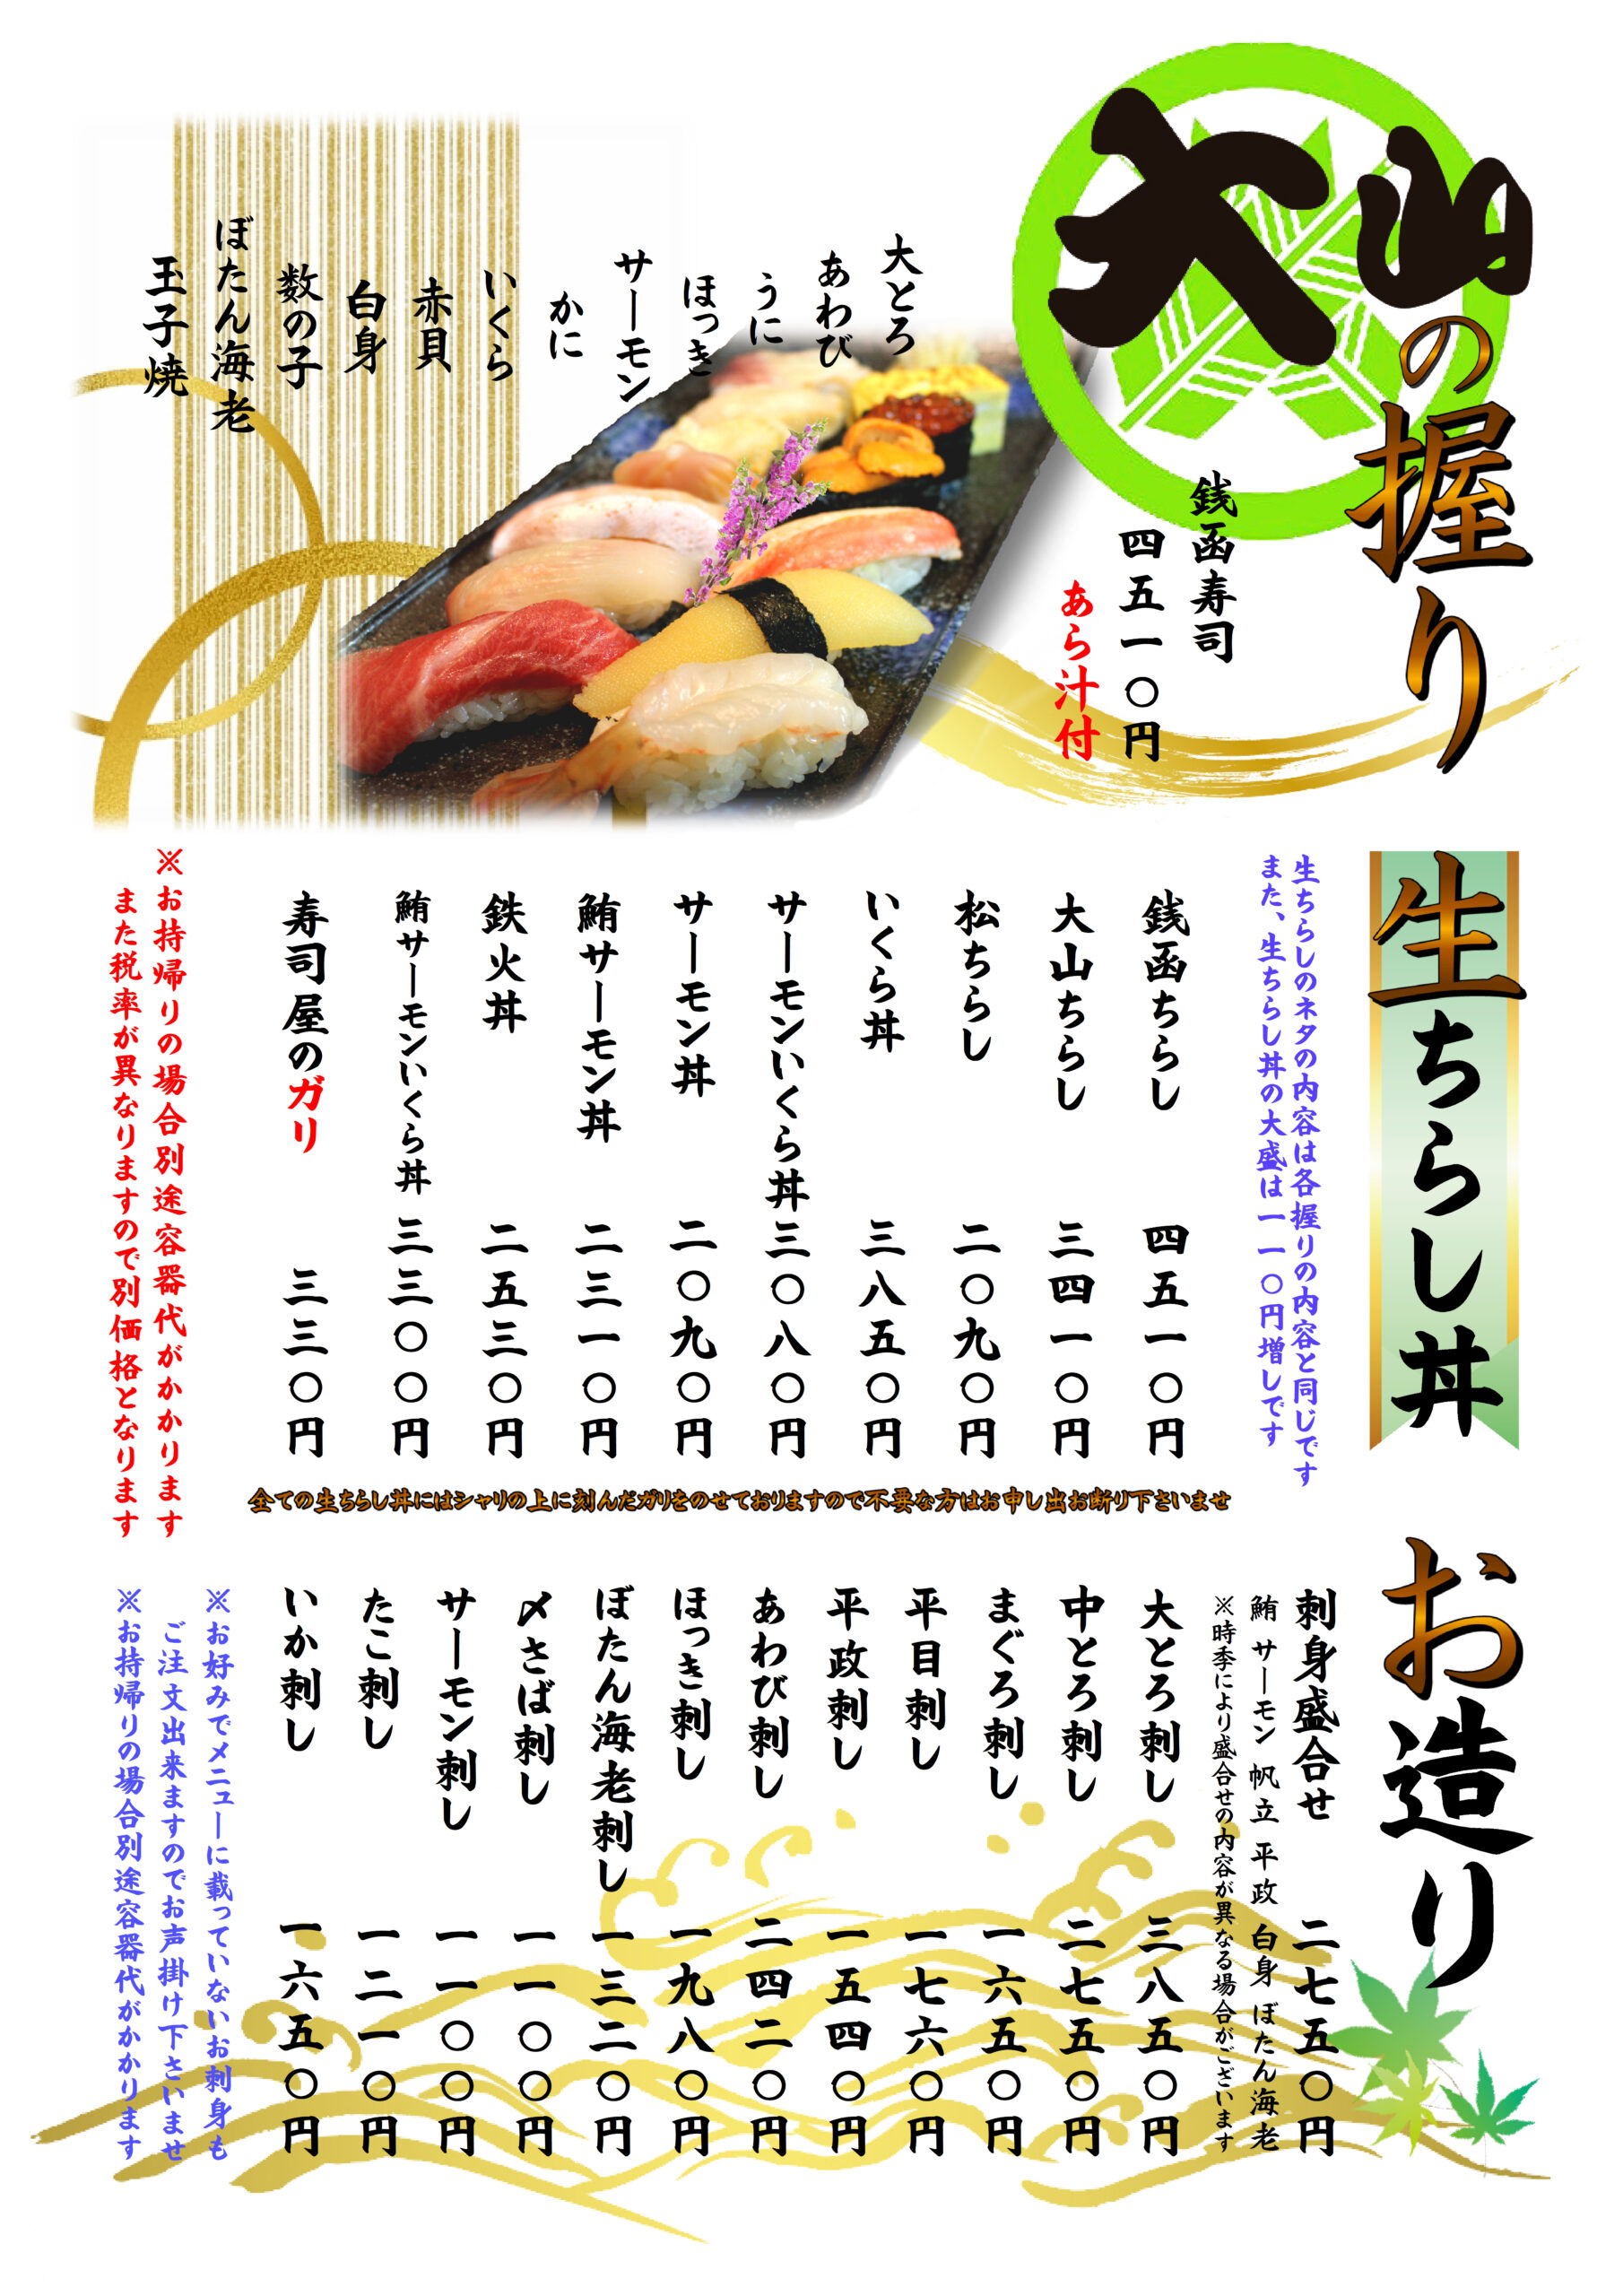 大山の握り
銭函寿司
四五一〇円
あら汁付
大とろ
あわび
うに
ほっき
サーモン
かに
いくら
赤貝
白身
数の子
ぼたん海老
玉子焼
生ちらし丼
生ちらしのネタの内容は各握りの内容と同じです
また、生ちらし丼の大盛は一一〇円増しです
銭函ちらし 四五一〇円
大山ちらし 三四一〇円
松ちらし 二〇九〇円
いくら丼 三八五〇円
サーモンいくら丼 三〇八〇円
サーモン丼 二〇九〇円
鮪サーモン丼 二三一〇円
鉄火丼 二五三〇円
鮪サーモンいくら丼 三三〇〇円
寿司屋のガリ 三三〇円
※お持帰りの場合別途容器代がかかります
また税率が異なりますので別価格となります
全ての生ちらし丼にはシャリの上に刻んだガリをのせておりますので不要な方はお申し出お断り下さいませ
お造り
刺身盛合せ 二七五〇円
鮪 サーモン 帆立 平政 白身 ぼたん海老
※時季により盛合せの内容が異なる場合がございます
大とろ刺し 三八五〇円
中とろ刺し 二七五〇円
まぐろ刺し 一六五〇円
平目刺し 一七六〇円
平政刺し 一五四〇円
あわび刺し 二四二〇円
ほっき刺し 一九八〇円
ぼたん海老刺し 一三二〇円
〆さば刺し 一一〇〇円
サーモン刺し 一一〇〇円
たこ刺し 一二一〇円
いか刺し 一六五〇円
※お好みでメニューに載っていないお刺身も
ご注文出来ますのでお声掛け下さいませ
※お持帰りの場合別途容器代がかかります